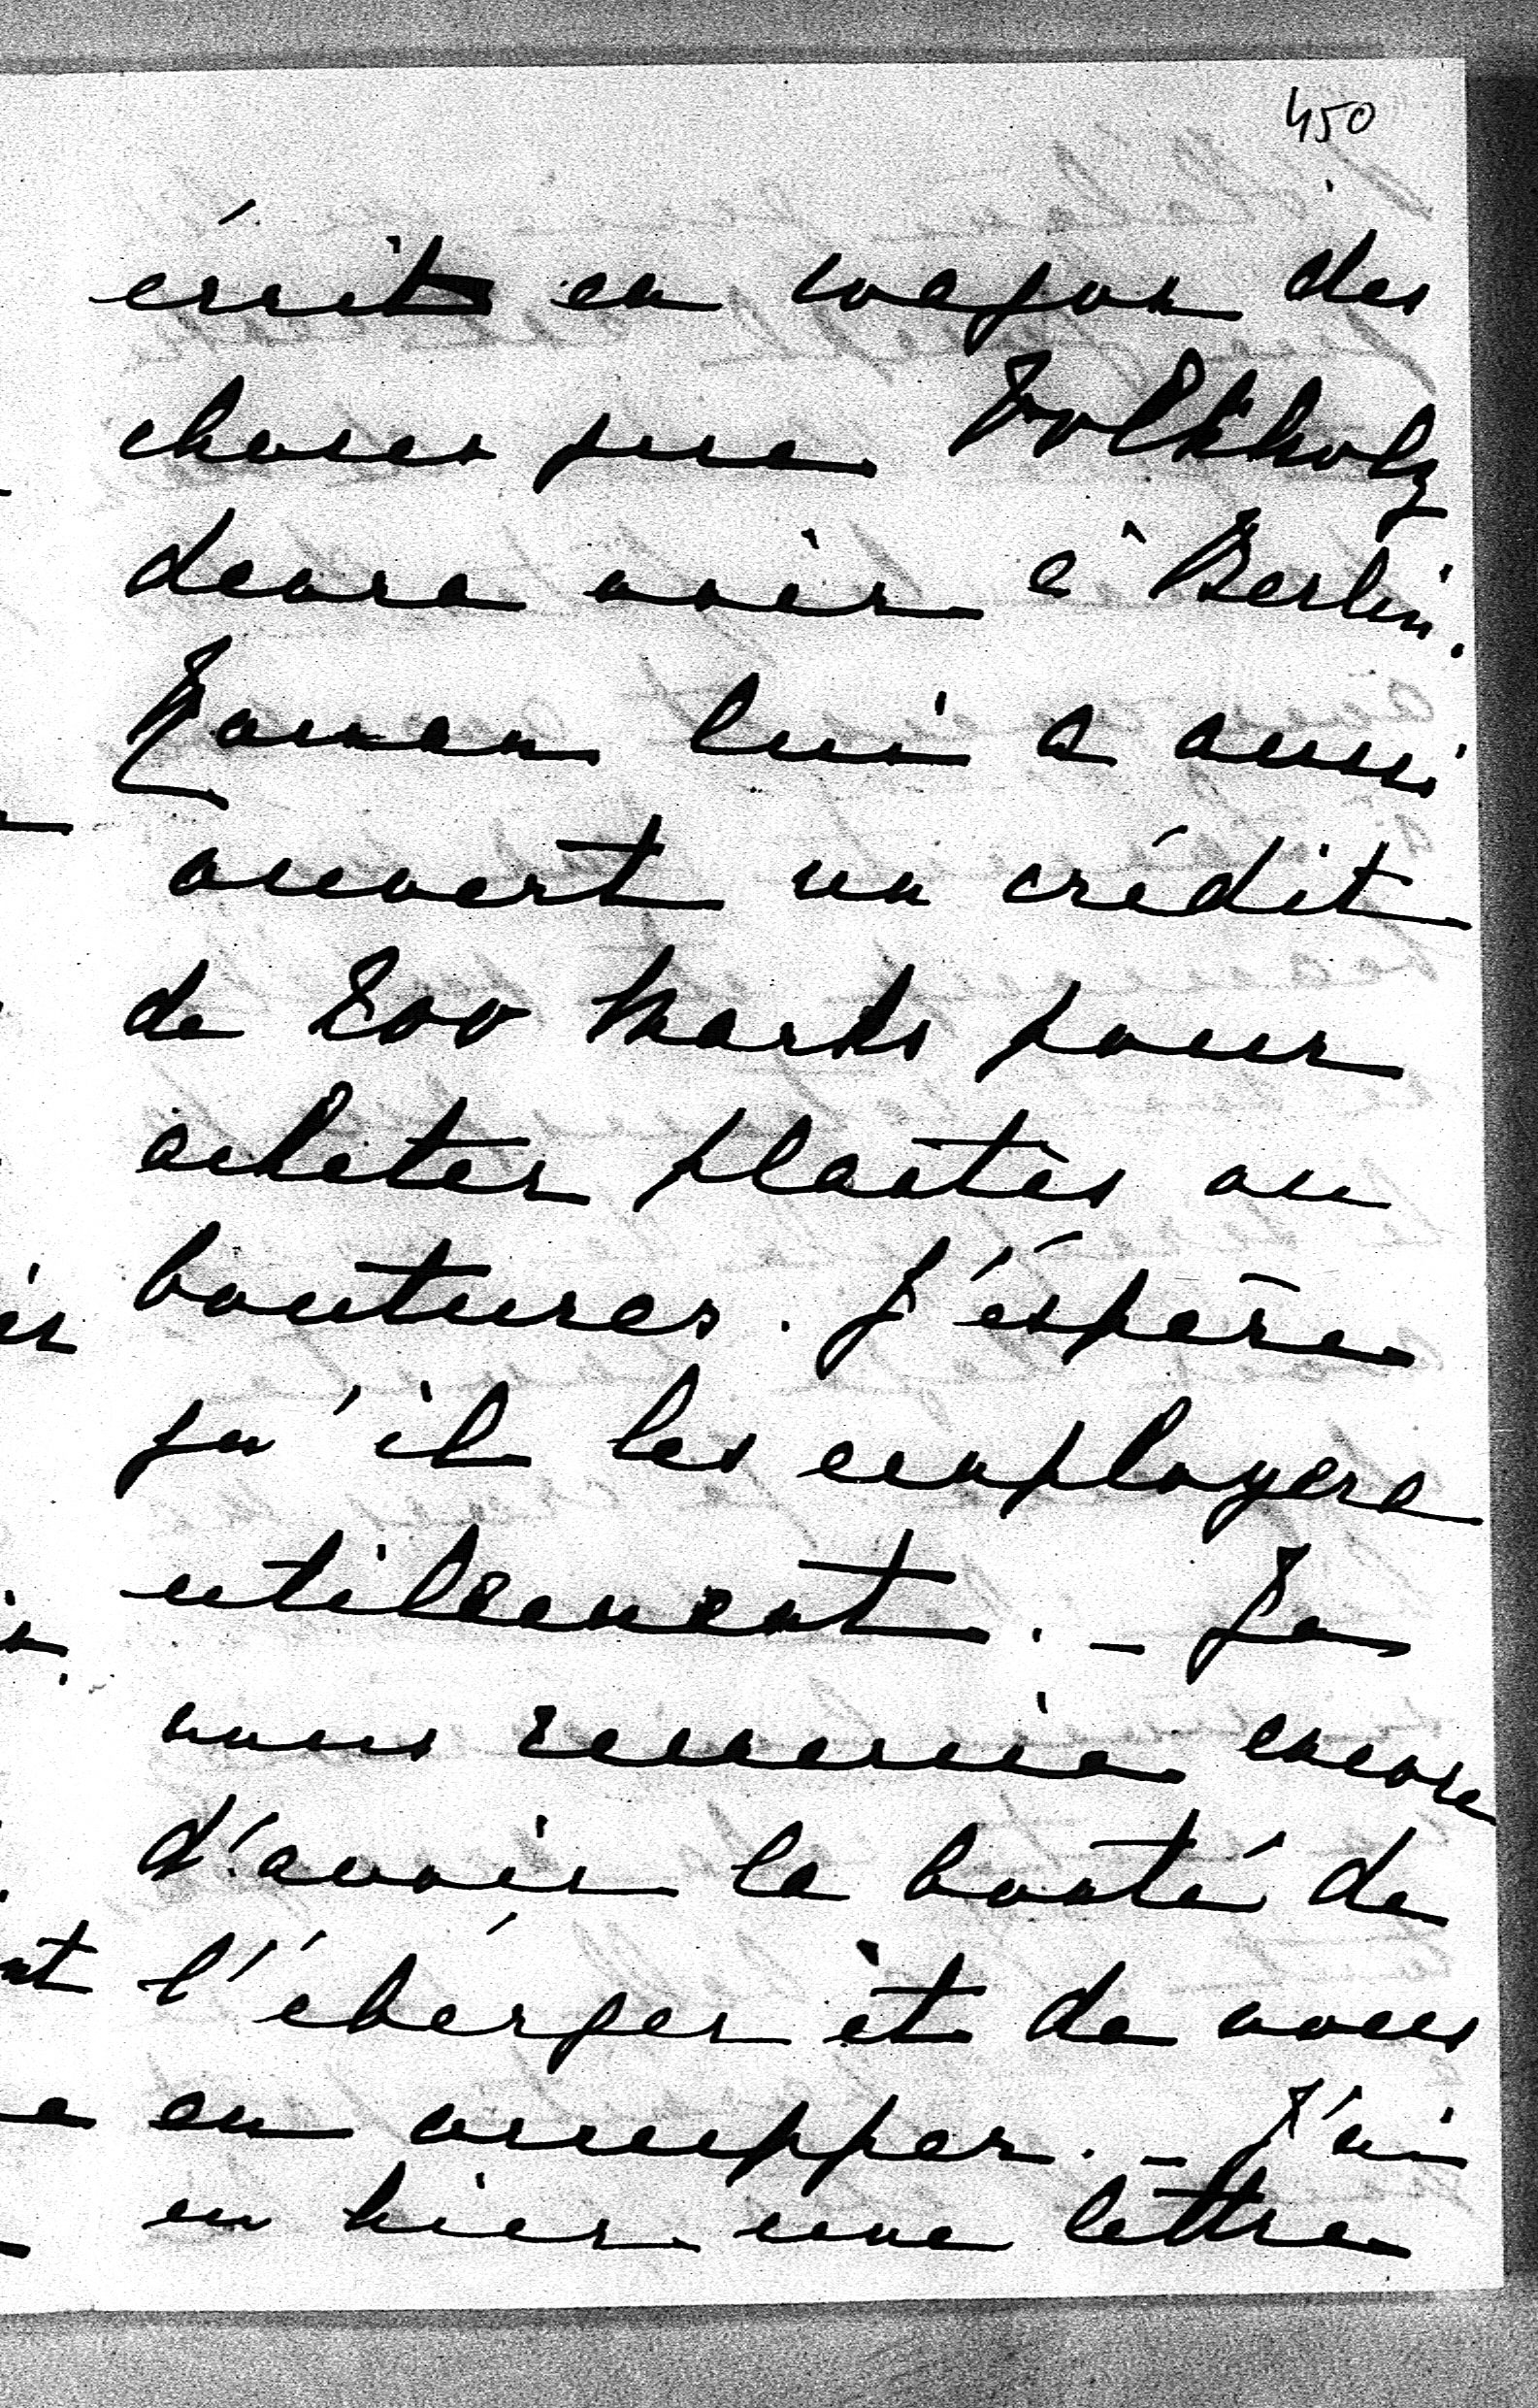 450
écrit en wagon des
choses que Volkholz
devra voir à Berlin.
Maman lui a aussi
ouvert un crédit
de 200 Marks pour
acheter plantes ou
boutures. J'éspère
qu'il les employera
utilement. – Je
vous remercie encore
d'avoir la bonté de
l'éberger et de vous
en occupper. – J'ai
eu hier une lettre